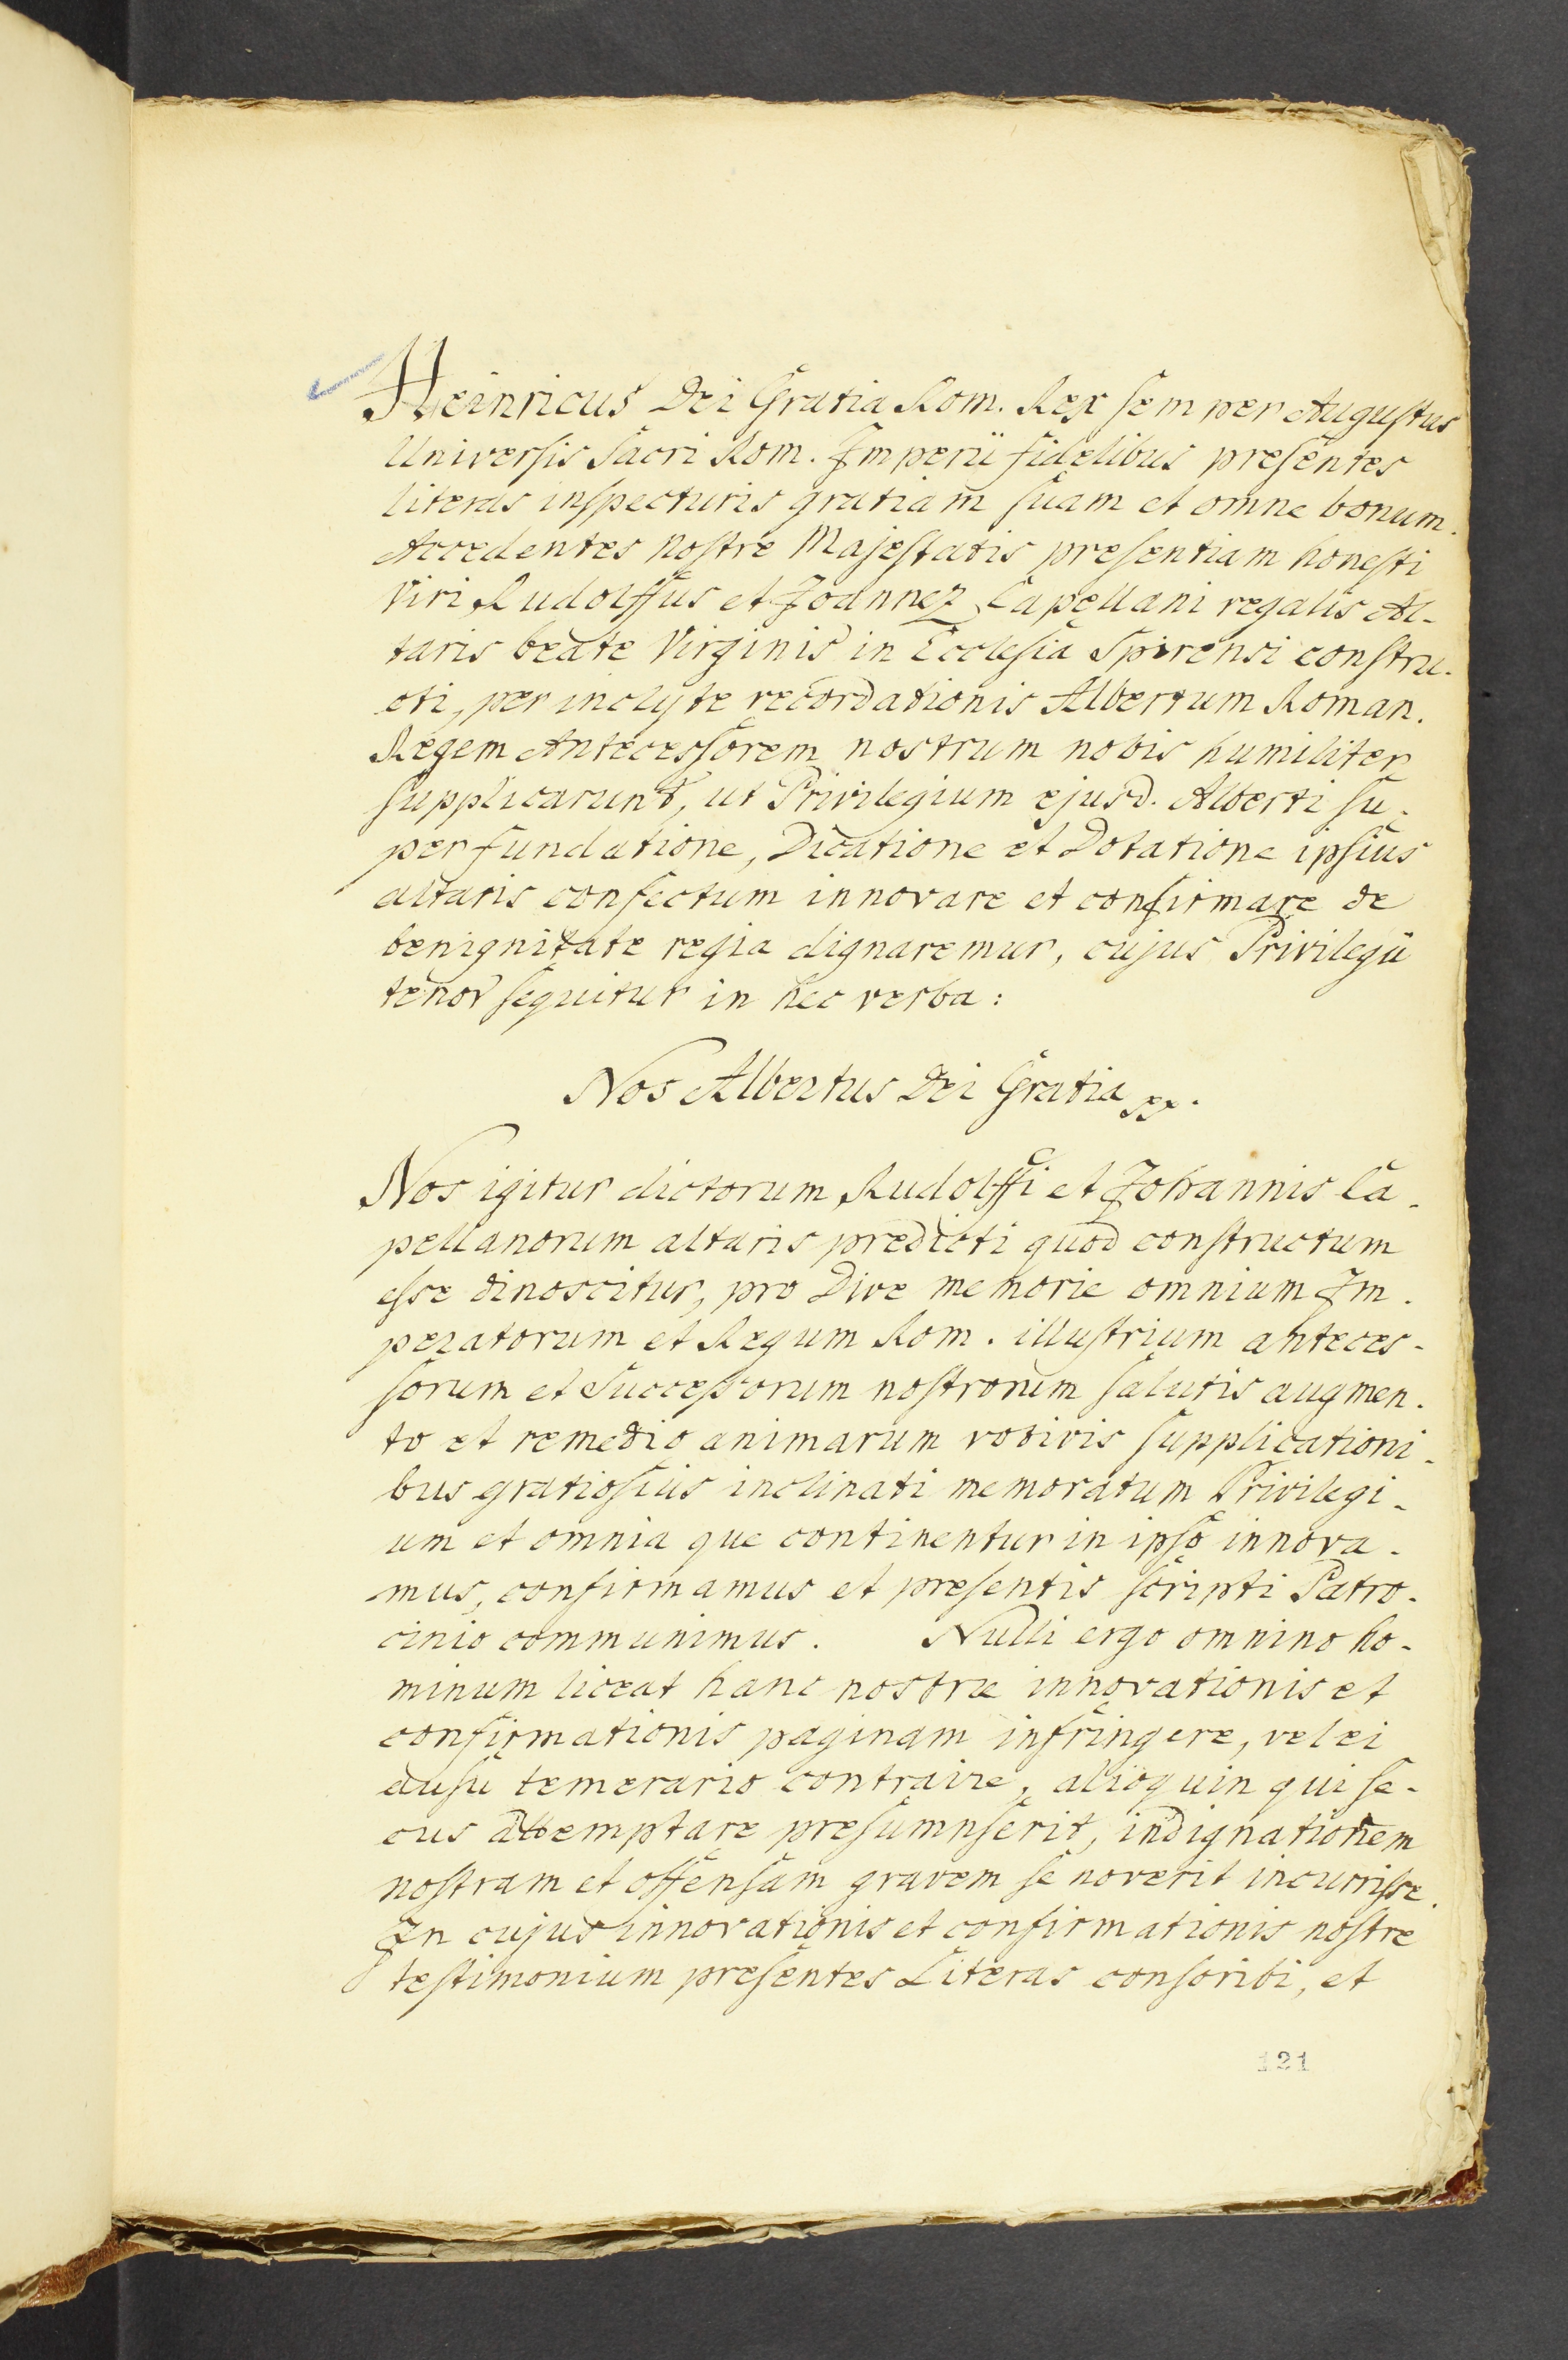 Heinricus Dei Gratia Rom. Rex semper Augustus
Universis Sacri Rom. Imperii fidelibus presentes
literas inspecturis gratiam suam et omne bonum.
Accedentes nostre Majestatis presentiam honesti
Viri, Rudolffus et Joannez Capellani regalis Al-
taris beate Virginis in Ecclesia Spirensi constru-
cti, per inclyte recordationis Albertum Roman.
Regem Antecessorem nostrum nobis humiliter
supplicarunt, ut Privilegium ejusd. Alberti su-
per fundatione, Dicatione et Dotatione ipsius
altaris confectum innovare et confirmare de
benignitate regia dignaremur, cujus Privilegii
tenor sequitur in hec verba:
Nos Albertus Dei Gratia
Nos igitur dictorum Rudolffi et Johannis Ca-
pellanorum altaris predicti quod constructum
esse dinoscitur, pro Dive memorie omnium Im-
peratorum et Regum Rom. illustrium anteces-
sorum et Successorum nostrorum salutis augmen-
to et remedio animarum votivis supplicationi-
bus gratiosius inclinati memoratum Privilegi-
um et omnia que continentur in ipso innova-
mus, confirmamus et presentis scripti Patro-
cinio communimus. Nulli ergo omnino ho-
minum liceat hanc nostræ innovationis et
confirmationis paginam infringere, vel ei
ausu temerario contraire, alioquin qui se-
cus attemptare presumnserit, indignationem
nostram et offensam gravem se noverit incurrisse.
In cujus innovationis et confirmationis nostre
testimonium presentes Literas conscribi, et
121